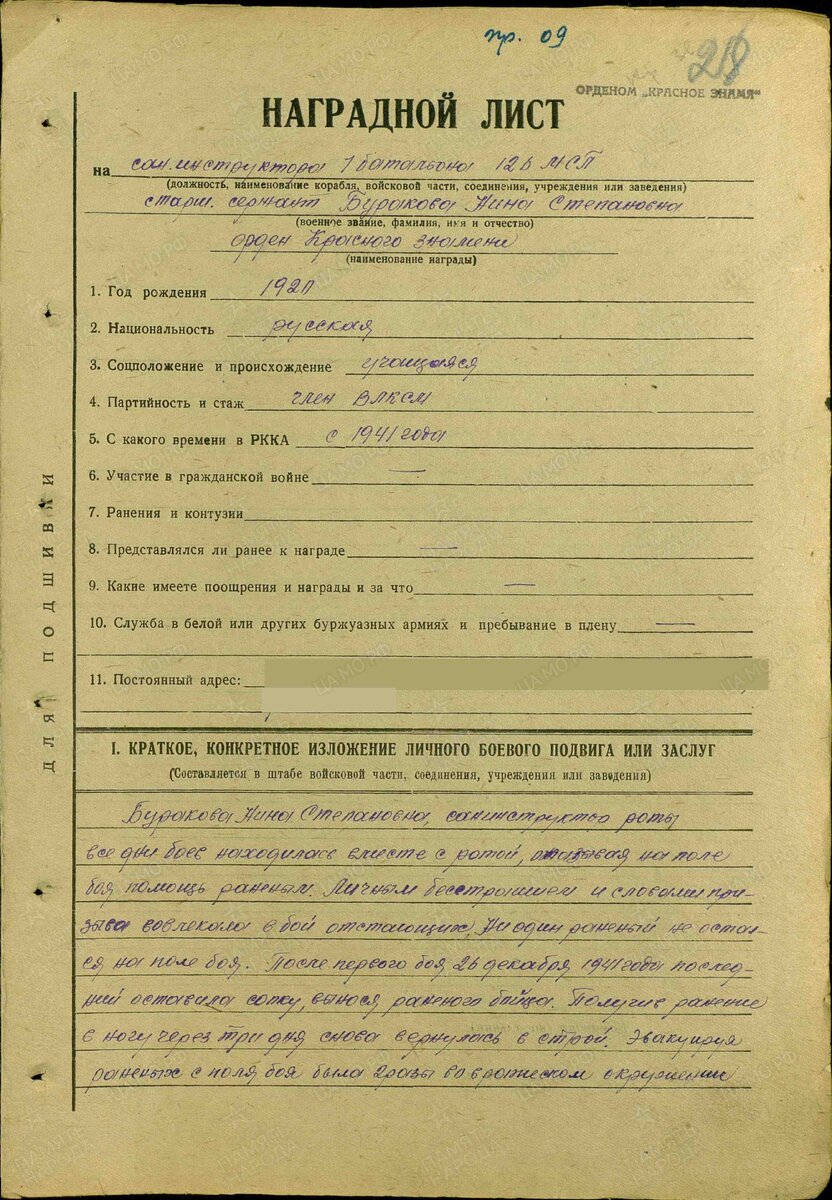 пр. 09
218
ОРДЕНОМ „КРАСНОЕ ЗНАМЯ“
НАГРАДНОЙ ЛИСТ
на сан.инструктора 1 батальона 126 МСП
(должность, наименование корабля, войсковой части, соединения, учреждения или заведения)
старш. сержант Буракова Нина Степановна
(военное звание, фамилия, имя и отчество)
орден Красного знамени
(наименование награды)
1. Год рождения 1920
2. Национальность русская
3. Соцположение и происхождение учащаяся
4. Партийность и стаж член ВЛКСМ
5. С какого времени в РККА с 1941 года
6. Участие в гражданской войне —
7. Ранения и контузии
8. Представлялся ли ранее к награде —
9. Какие имеете поощрения и награды и за что —
10. Служба в белой или других буржуазных армиях и пребывание в плену —
11. Постоянный адрес:
ДЛЯ ПОДШИВКИ
I. КРАТКОЕ, КОНКРЕТНОЕ ИЗЛОЖЕНИЕ ЛИЧНОГО БОЕВОГО ПОДВИГА ИЛИ ЗАСЛУГ
(Составляется в штабе войсковой части, соединения, учреждения или заведения)
Буракова Нина Степановна, санинструктор роты
все дни боев находилась вместе с ротой, оказывая на поле
боя помощь раненым. Личным бесстрашием и словами при-
зыва вовлекала в бой отстающих. Ни один раненый не остал-
ся на поле боя. После первого боя 26 декабря 1941 года послед-
ний оставила сопку, вынося раненого бойца. Получив ранение
в ногу через три дня снова вернулась в строй. Эвакуируя
раненых с поля боя была 2 разы во вражеском окружении